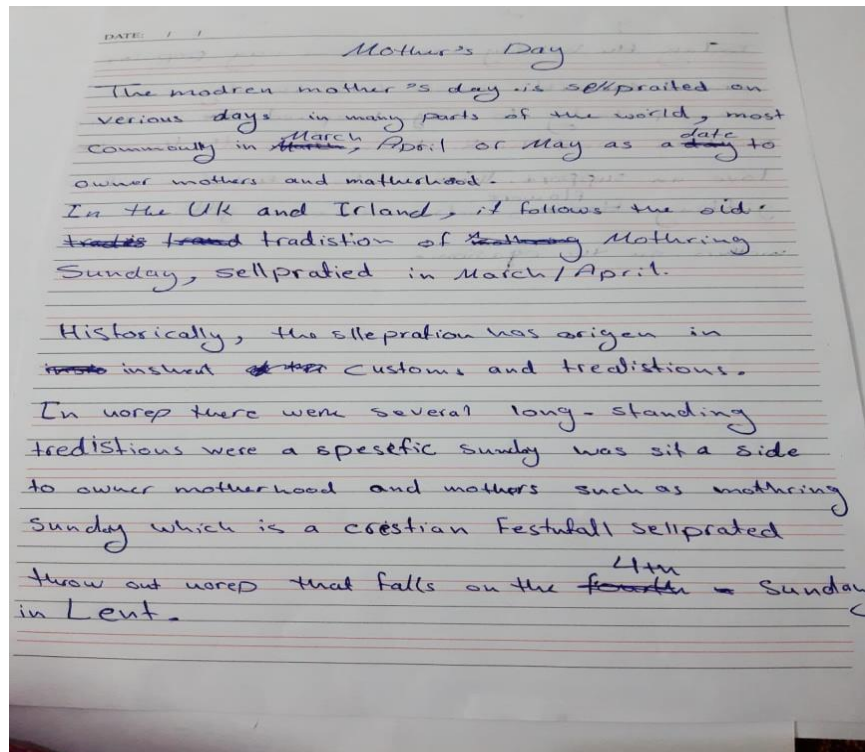 DATE: / /
Mother's Day
The modren mother's day is sellpraited on
verious days in many parts of the world, most
commonlly in March, April or May as a date to
owner mothers and matherhood.
In the UK and Irland, it follows the old
tradistion of Mothring
Sunday, sellpratied in March/April.
Historically, the sllepration has origen in
inshent customs and tredistions.
In uorep there were several long-standing
tredistions were a spesefic sunday was sit a side
to owner motherhood and mothers such as mothring
Sunday which is a crestian Festufall sellprated
throw out uorep that falls on the 4th Sunday
in Lent.